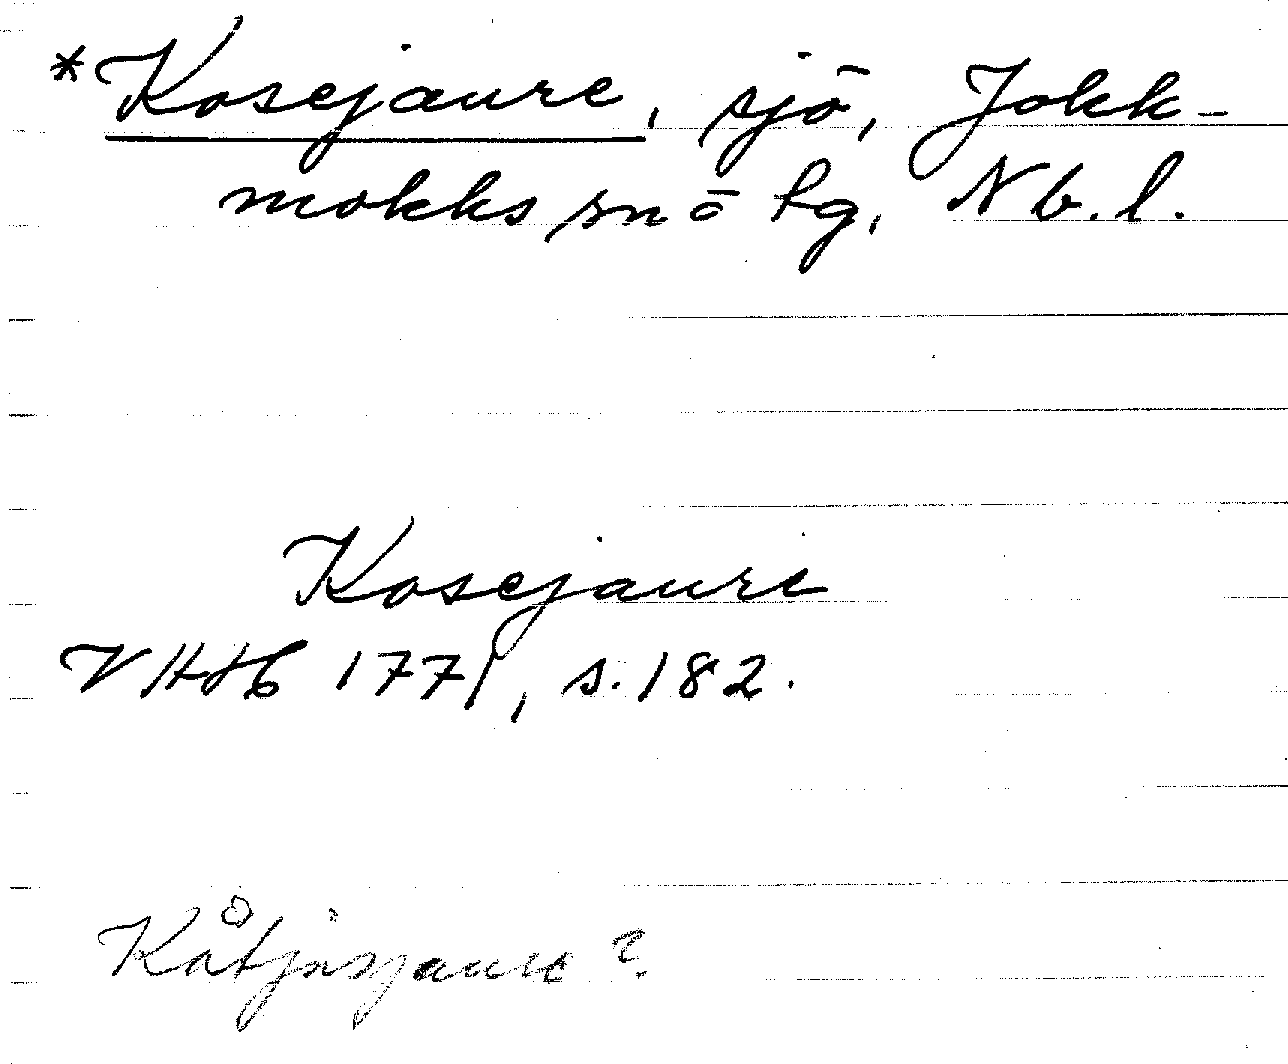 *Kosejaure, sjö, Jokk-
mokks snö lg, Nb.l.
Kosejaure
VHHH 1771, s. 182.
Kåtjasjaure?